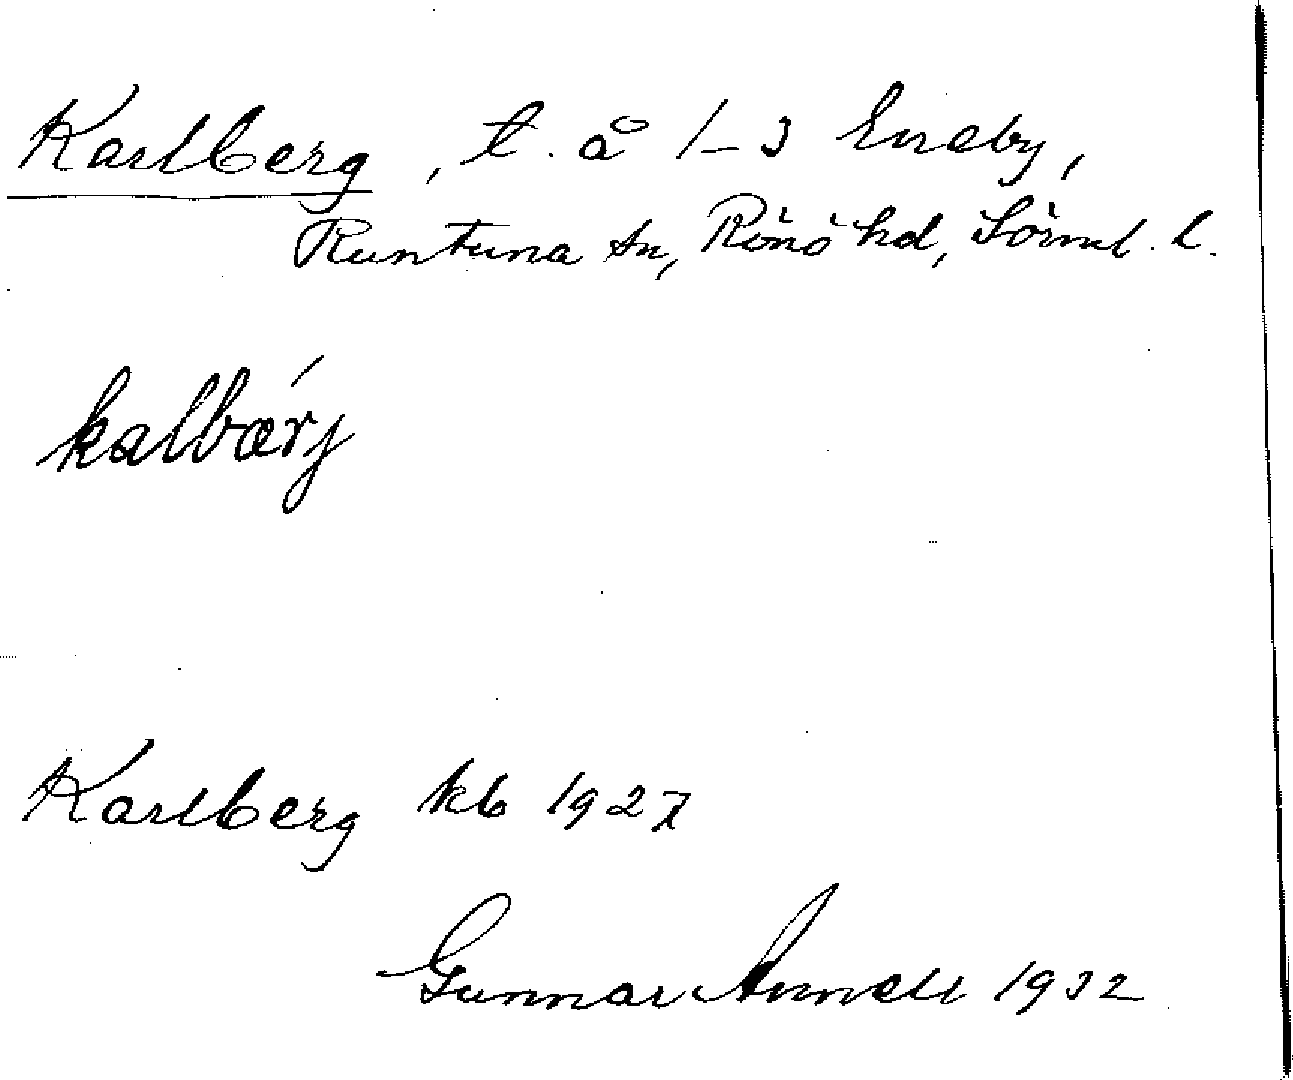 Karlberg, t. å 1–3 Eneby,
Runtuna sn, Rönö hd, Sörml. l.
kalbærj
Karlberg kb 1927
Gunnar Annell 1932